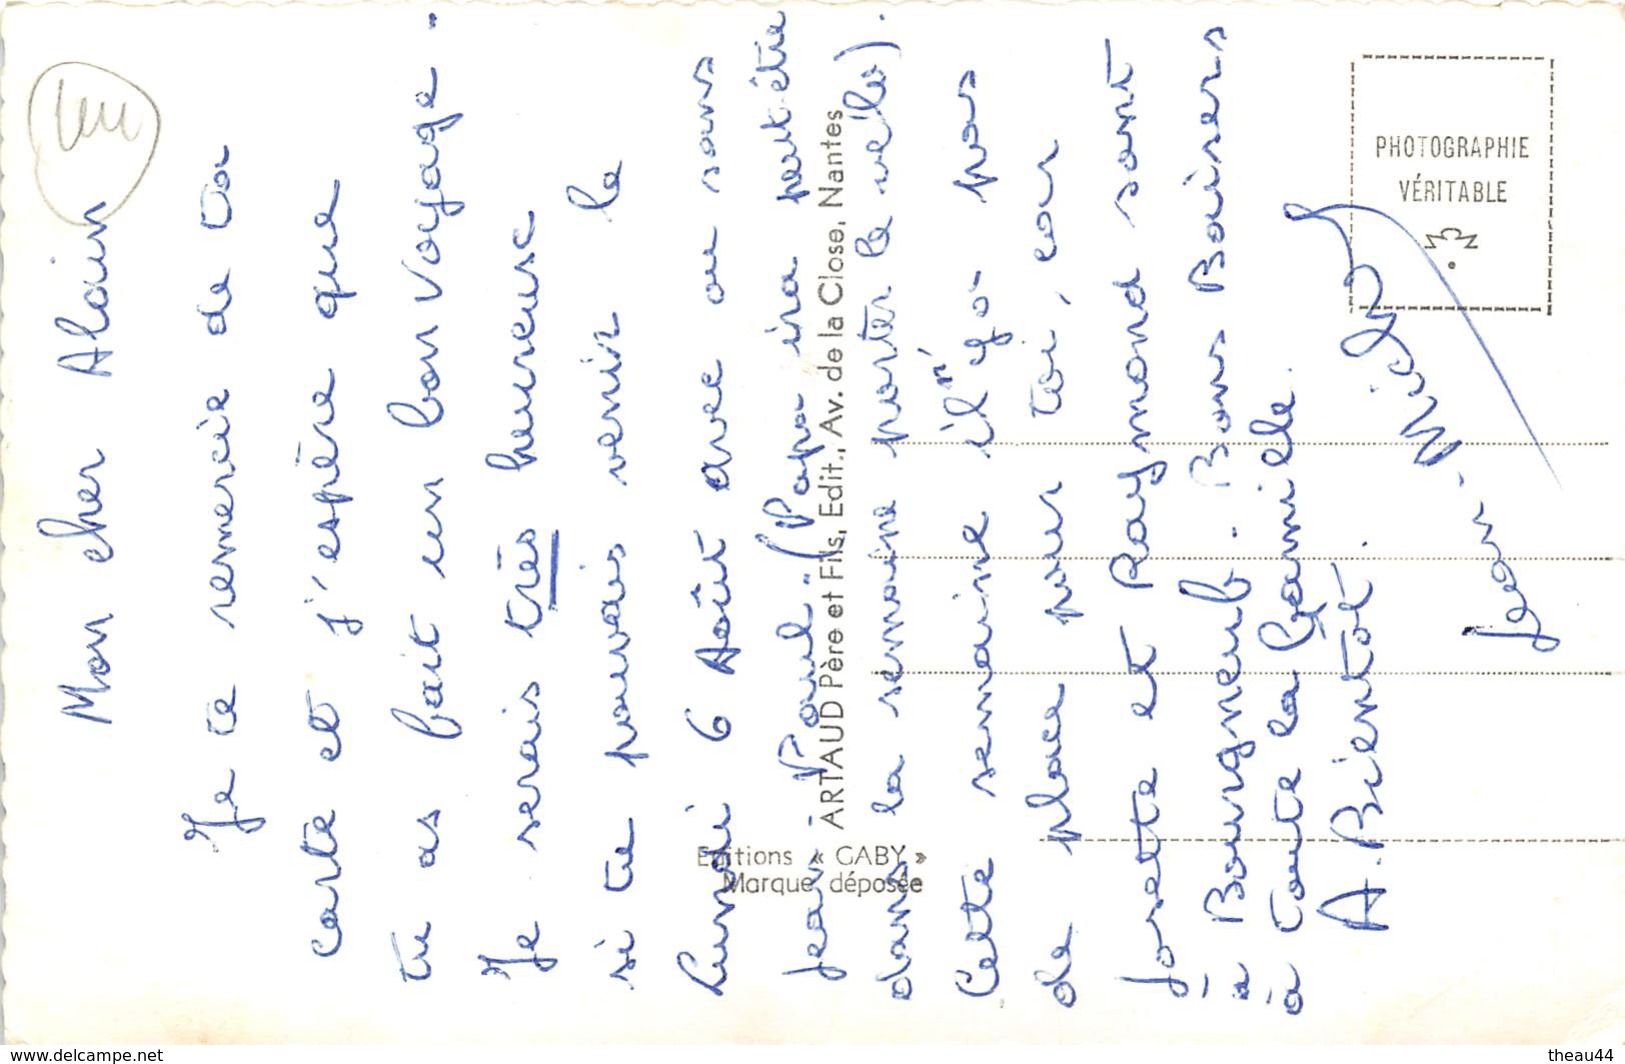 Mon cher Alain
Je te remercie de ta
carte et j'espère que
tu as fait un bon voyage.
Je serais très heureuse
si tu pouvais venir le
Lundi 6 Août avec ou sans
Jean-Paul. (Papa ira peut être
dans la semaine porter le vélo).
Cette semaine il n'y a pas
de place pour toi, car
Josette et Raymond sont
à Bourgneuf. Bons Baisers
à toute la famille.
A. Bientôt.
Jean-Michel
PHOTOGRAPHIE
VÉRITABLE
ARTAUD Père et Fils, Edit., Av. de la Close, Nantes
Editions « GABY »
Marque déposée
www.delcampe.net
theau44